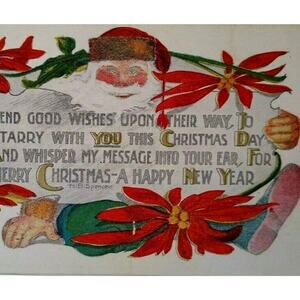 END GOOD WISHES UPON THEIR WAY, TO
TARRY WITH YOU THIS CHRISTMAS DAY
ND WHISPER MY MESSAGE INTO YOUR EAR, FOR
ERRY CHRISTMAS-A HAPPY NEW YEAR